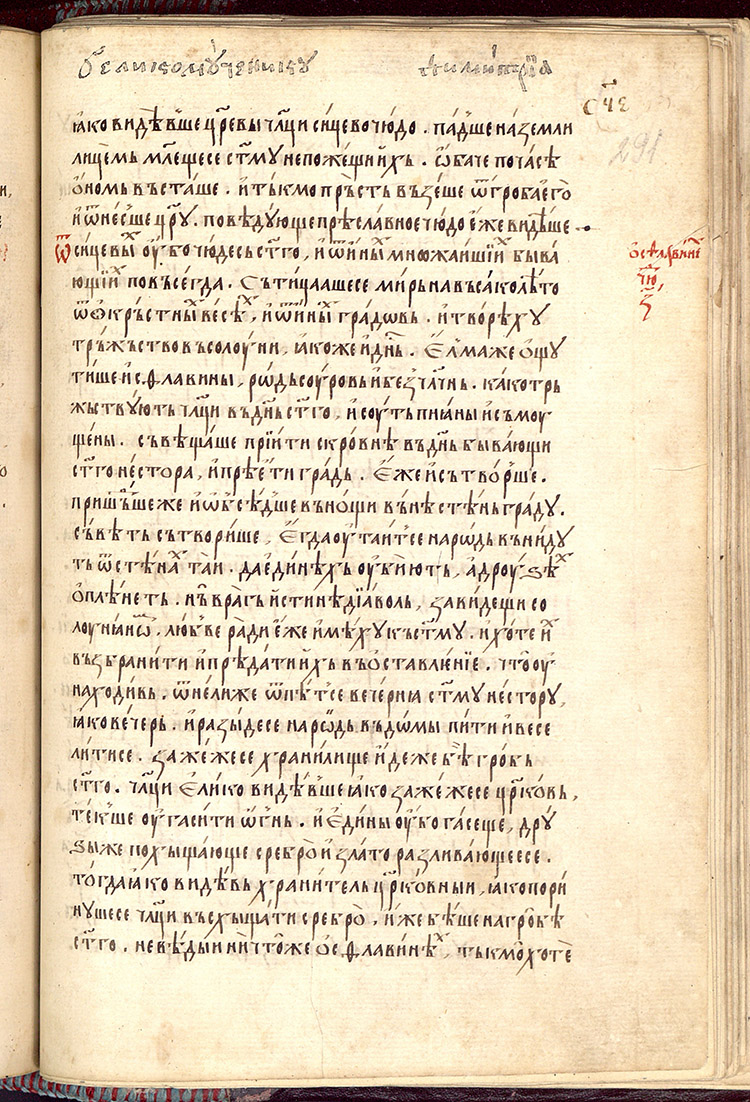 Великомꙋченикꙋ димитрїа
сч҃е
291
ꙗко видѣвше цр҃евы чл҃ци сицево чюдо. пад'ше на земли
лицемь мл҃еще се ст҃мꙋ не пожещи ихъ. ѡбаче по часѣ
ономь въсташе. и тькмо пръсть въземше ѿ гроба его
и ѿнес'ше цр҃ꙋ. повѣдꙋюще прѣславное чюдо еже видѣше
ѿ сицевыⷯ оубо чюдесь ст҃го, и ѿ иныⷯ мнѡжаишїиⷯ быва
ющїиⷯ повьсегда. Сътицаашесе мирьна въсако лѣто
ѿ ѻкръстныⷯ весѣⷯ, и ѿ иныⷯ градовь. и творѣхꙋ
тръжьство въ солоуни, ꙗкоже и дн҃ь. Елма же ощꙋ
тише и сфлавины, рѡдь соуровь и безчл҃чнь. како трь
жьствꙋють чл҃ци въ дн҃ь ст҃го, и соуть пиꙗны и съмоу
щены. съвѣщаше прїити скровнѣ въ дн҃ь бывающи
ст҃го нестора, и прѣети градь. Еже и сътвор'ше.
пришьⷣше же и ѡбсѣд'ше въ нощи вънѣ стѣнь градꙋ.
съвѣть сътворише, Егда оутаит'се народь вънидꙋ
ть ѿ стѣнаⷯ таи. да единѣхь оубїють, а дрꙋѕѣⷯ
оплѣнеть. нъ врагь истинѣ дїаволь, завидещи со
лоунꙗнѡⷨ. любве ради еже имѣхꙋ къ ст҃мꙋ. и хоте иⷯ
възбранити и прѣдати ихъ въ оставлѥнїе. что оу
находивь. ѿнелиже ѿпѣт'се вечернꙗ ст҃мꙋ несторꙋ,
ꙗко вечерь. и разыдесе народь въ домы пити и весе
литисе. зажежесе хранилище идеже бѣ гробь
ст҃го. чл҃ци елико видѣвше ꙗко зажежесе цр҃ковь,
тек'ше оугасити ѡгнь. и едины оубо гасеще, дрꙋ
ѕыже похыщающе сребро и злато разливающеесе.
тогда ꙗко видѣвь хранитель цр҃ковныи, ꙗко пори
нꙋшесе чл҃ци въсхыщати сребро, иже бѣше на гробѣ
ст҃го. не вѣдыи ничтоже о сфлавинѣⷯ, тькмо хоте